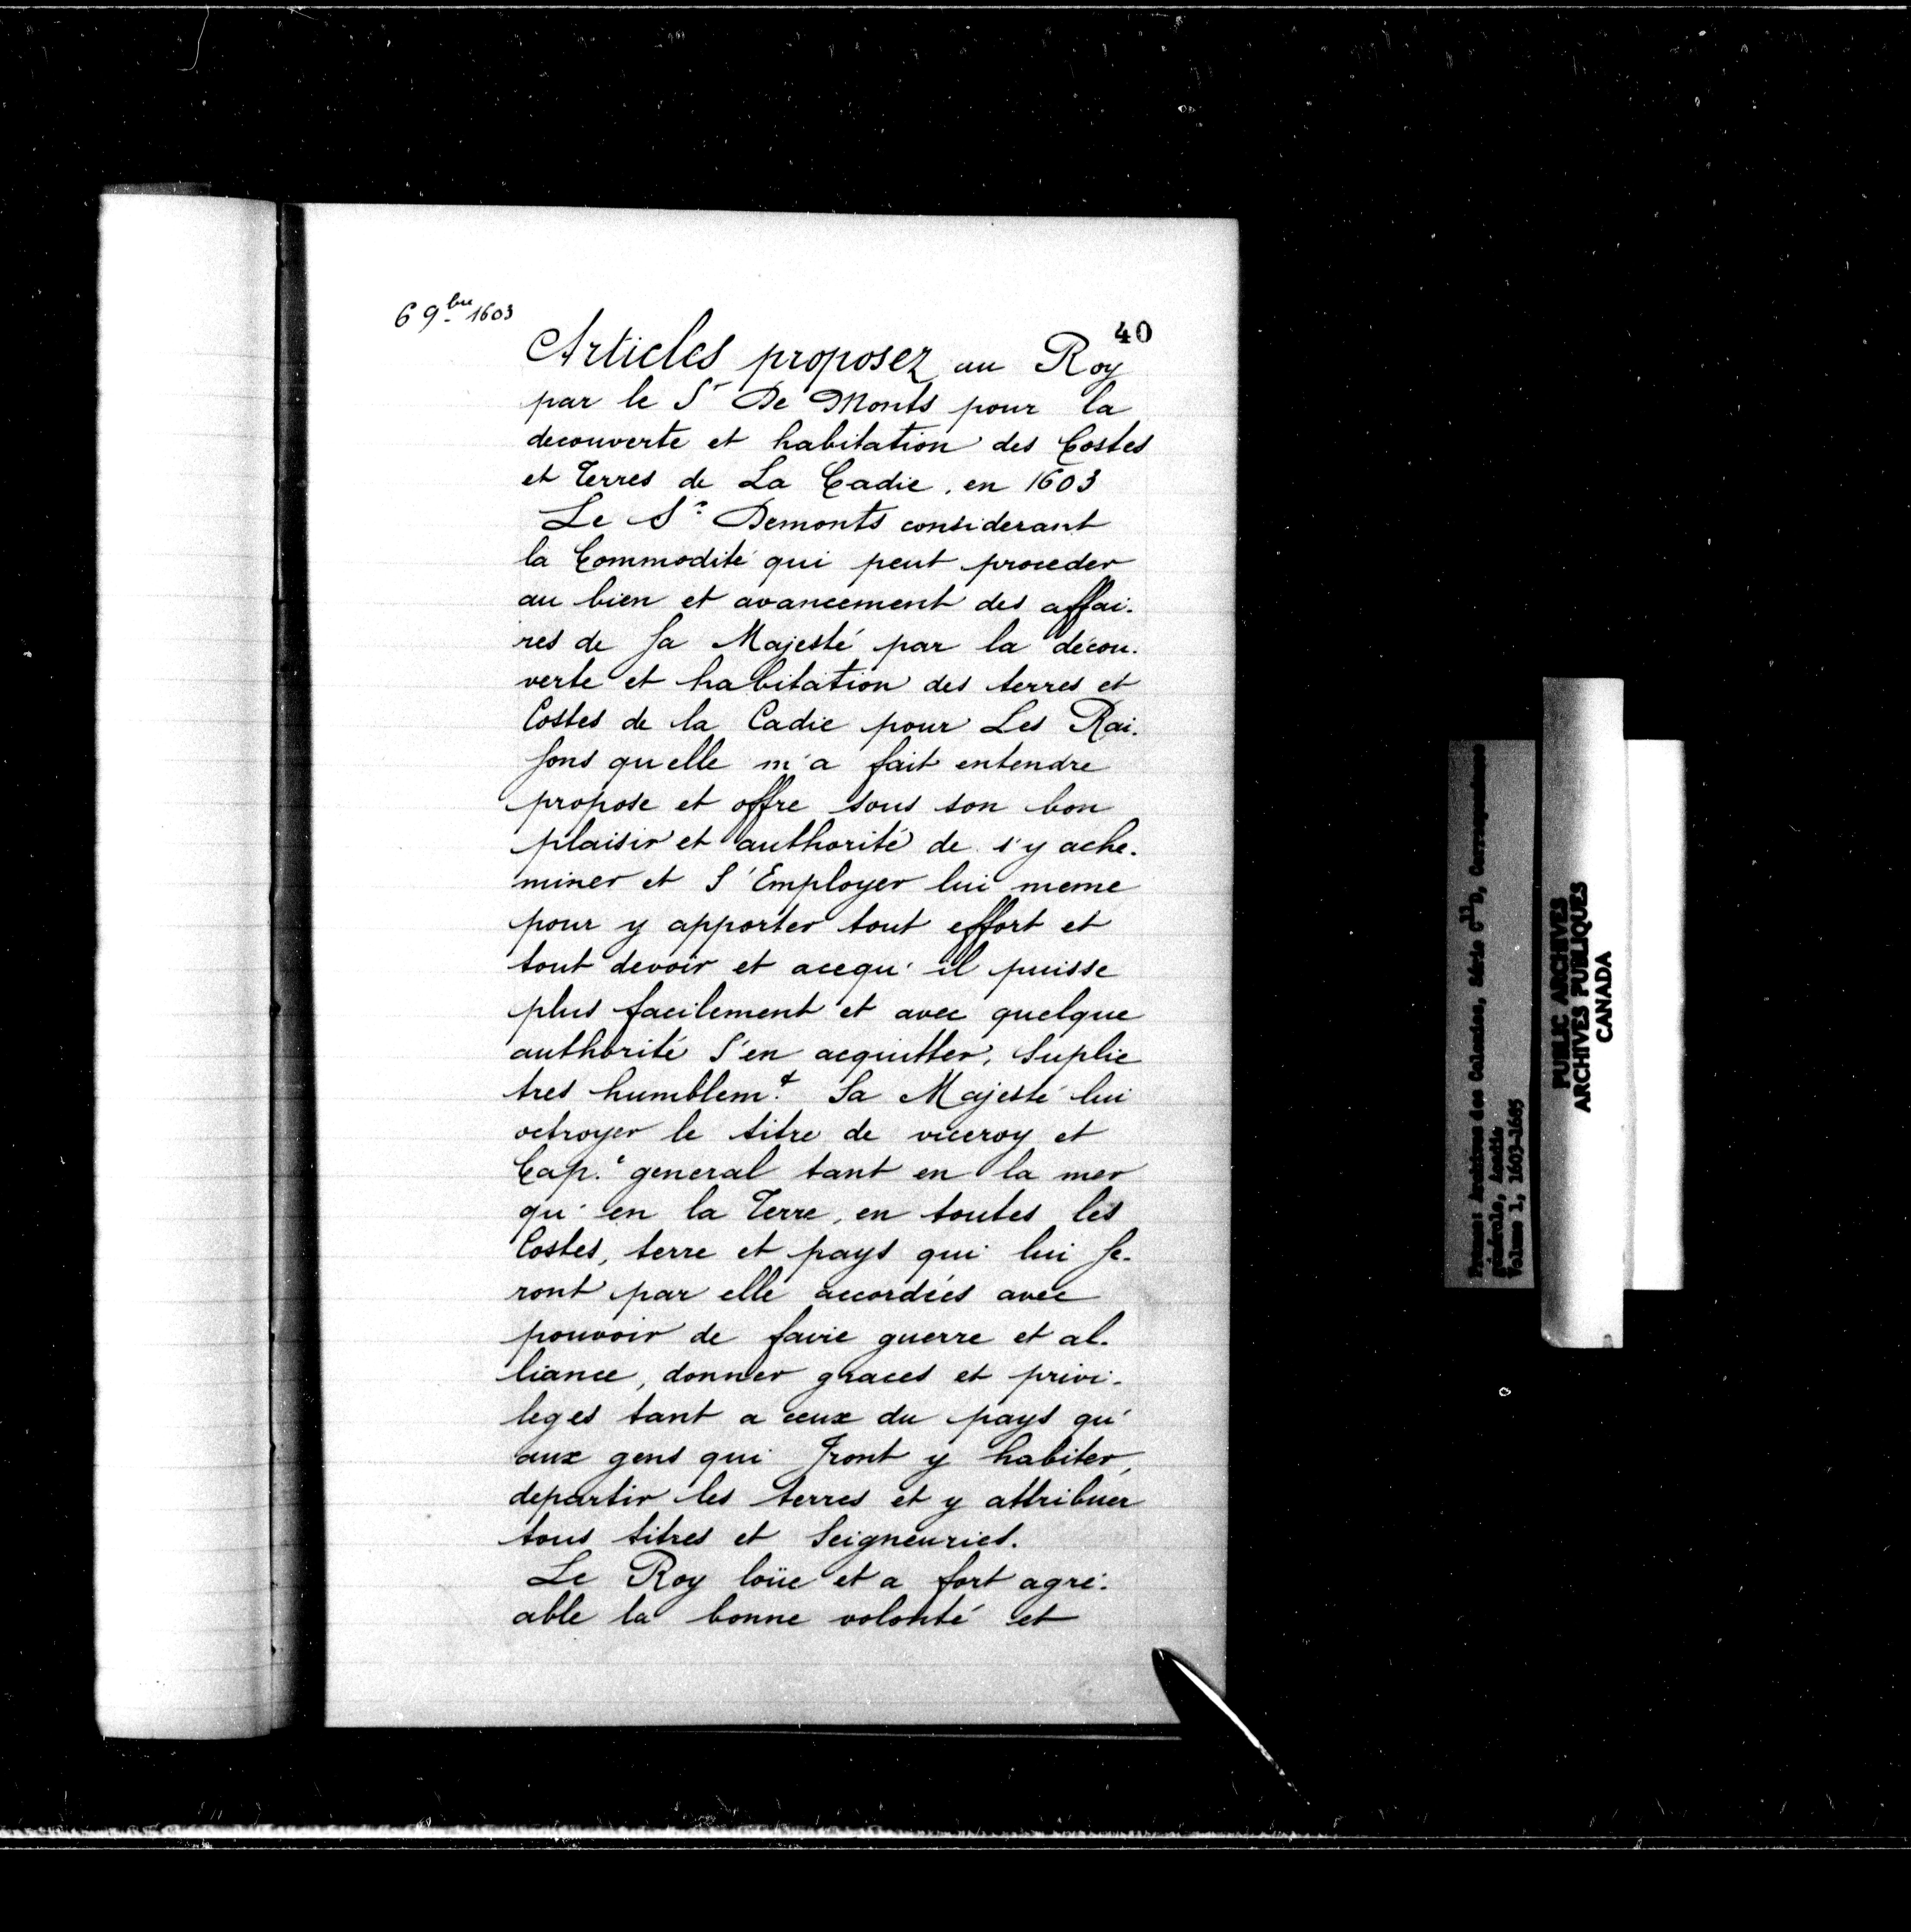 6 9bre 1603
40
Articles proposez au Roy
par le Sr De Monts pour la
decouverte et habitation des Costes
et Terres de La Cadie, en 1603
Le Sr Demonts considerant
la Commodité qui peut proceder
au bien et avancement des affai-
res de Sa Majesté par la décou-
verte et habitation des terres et
Costes de la Cadie pour Les Rai-
sons qu'elle m'a fait entendre
propose et offre sous son bon
plaisir et authorité de s'y ache-
miner et S'Employer lui meme
pour y apporter tout effort et
tout devoir et acequ'il puisse
plus facilement et avec quelque
authorité S'en acquitter, Suplie
tres humblemt Sa Majesté lui
octroyer le titre de viceroy et
Cap.e general tant en la mer
qu'en la Terre, en toutes les
Costes, terre et pays qui lui Se-
ront par elle accordées avec
pouvoir de faire guerre et al-
liance, donner graces et privi-
leges tant a ceux du pays qu'
aux gens qui Iront y habiter,
departir les terres et y attribuer
tous titres et Seigneuries.
Le Roy loüe et a fort agré-
able la bonne volonté et
France: Archives des Colonies, Série C11D, Correspondance
générale, Acadie
Volume 1, 1603-1685
PUBLIC ARCHIVES
ARCHIVES PUBLIQUES
CANADA